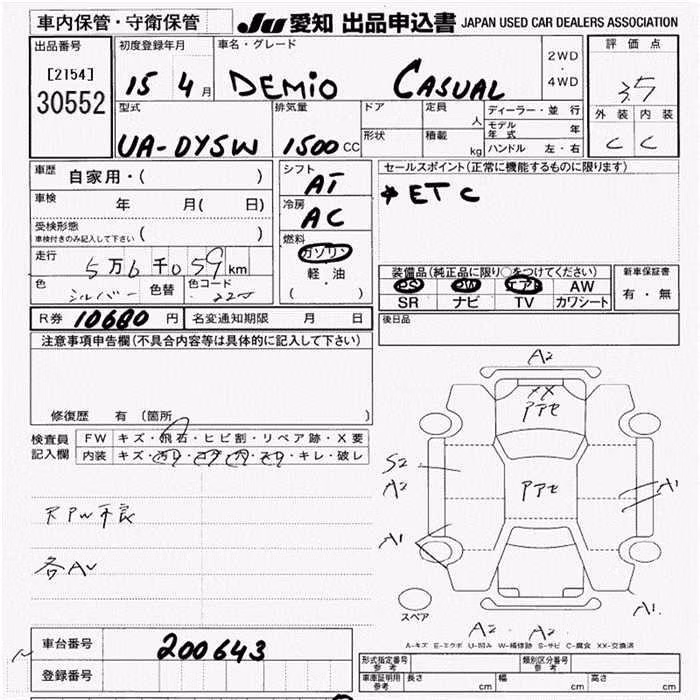 車内保管・守衛保管
JU 愛知 出品申込書 JAPAN USED CAR DEALERS ASSOCIATION
出品番号
[2154]
30552
初度登録年月
15 4 月
車名・グレード
DEMIO CASUAL
2WD
・
4WD
評価点
3.5
外装 内装
C C
型式
UA-DY5W
排気量
1500 CC
ドア
形状
定員 人
積載 kg
ディーラー・並行
モデル年式 年
ハンドル 左・右
車歴 自家用・( )
車検 年 月( 日)
受検形態
車検付きのみ記入して下さい ( )
走行 5万6千059km
色 シルバー 色替 色コード 22S
シフト
AT
冷房
AC
燃料
ガソリン
軽油
( ・ )
セールスポイント(正常に機能するものに限ります)
ETC
装備品(純正品に限り○をつけてください)
PS PW エアB AW
SR ナビ TV カワシート
新車保証書
有・無
後日品
R券 10680 円 名変通知期限 月 日
注意事項申告欄(不具合内容等は具体的に記入して下さい)
修復歴 有(箇所 )
検査員
記入欄
FW キズ・飛石・ヒビ割・リペア跡・X要
内装 キズ・汚レ・コゲ・穴・スレ・キレ・破レ
PW不良
各AU
A2
XX
アアセ
S2
A2
アアセ
A1
A1
A1
スペア
A2 A2
A-キズ E-エクボ U-凹み W-補修跡 S-サビ C-腐食 XX-交換済
車台番号 200643
登録番号
形式指定番号 参考
類別区分番号 参考
車庫証明用 参考 長さ cm 幅 cm 高さ cm